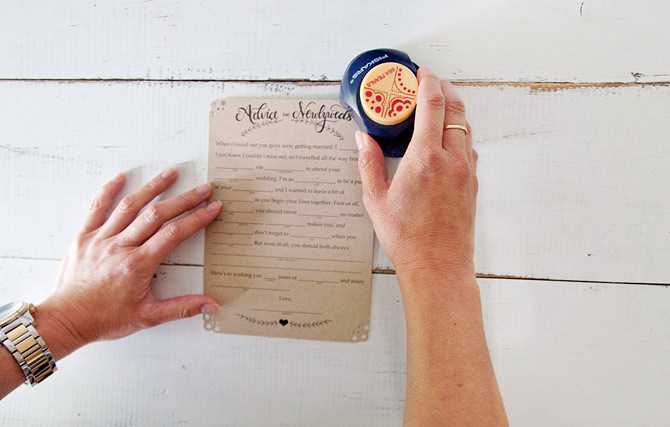 FISKARS®
SEA PEARLS
Advice for Newlyweds
When I found out you guys were getting married, I
I just knew I couldn't miss out, so I travelled all the way from
via to attend your
wedding. I'm so to be a part
of your and I wanted to leave a bit of
as you begin your lives together. First of all,
you should never no matter
makes you, and
don't forget to when you
But most of all, you should both always
Here's to wishing you years of and many
Love,